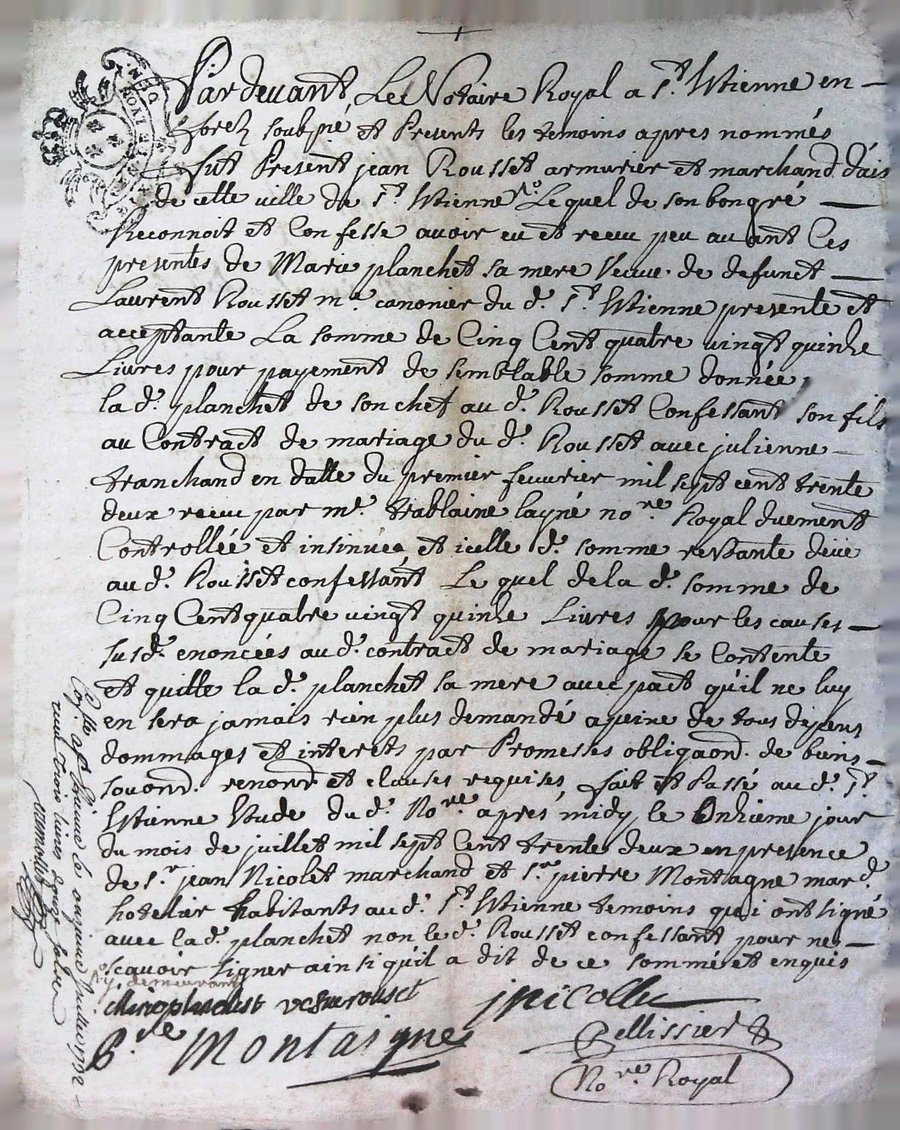 Pardevant Le Notaire Royal a St. Etienne en
forez soubsné et Presents les temoins apres nommés
fut Present jean Rousset armurier et marchand
de cette ville de St. Etienne Lequel de son bon gré
Reconnoit et Confesse avoir eu et recu peu avant Ces
presentes de Marie planchet sa mere Veuve de defunct
Laurent Rousset me. canonier du d. St. Etienne presente et
acceptante La somme de Cinq Cent quatre vingt quinze
Livres pour payement de semblable somme donnée
la d. planchet de son chef au d. Rousset Confessant son fils
au Contract de mariage du d. Rousset avec julienne
tranchand en datte du premier feuvrier mil sept cent trente
deux recu par me. trablaine layné nore Royal duement
Controllée et insinuée et icelle d. somme restante deüe
au d. Rousset confessant Le quel de la d. somme de
Cinq Cent quatre vingt quinze Livres pour les causes
susd. enoncées au d. contract de mariage se Contente
et quitte la d. planchet sa mere avec pact qu'il ne luy
en sera jamais rien plus demandé a peine de tous depens
dommages et interets par Promesses obligaond. de biens
soumond. renond et clauses requises, fait et Passé au d. St.
Etienne Etude du d. Nore apres midy le Onzieme jour
du mois de juillet mil sept Cent trente deux en presence
de Sr. jean Nicolet marchand et Sr. pierre Montagne mard.
hotelier habitants au d. St. Etienne temoins qui ont signé
avec la d. planchet non le d. Rousset confessant pour ne
scavoir signer ainsi qu'il a dit de ce sommé et enquis
y demeurant
planchet veuve rouset
jnicollet
P.re Montaigne
Pellissier
Nore Royal
Coelle a St. Etienne le onzieme juillet 1732
recu trois livres douze sols